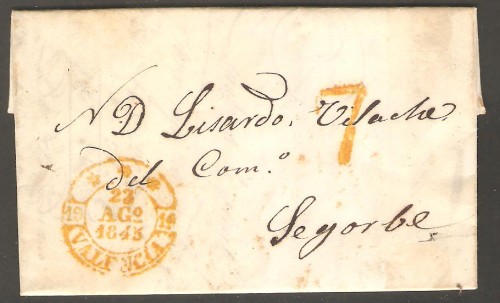 7
N D Lisardo. Vilache
del Com.º
Segorbe
23
AGº
1845
19 19
VALENCIA